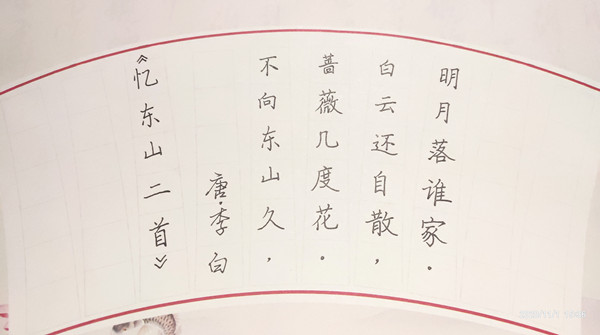 《忆东山二首》
唐·季白
不向东山久，
蔷薇几度花。
白云还自散，
明月落谁家。